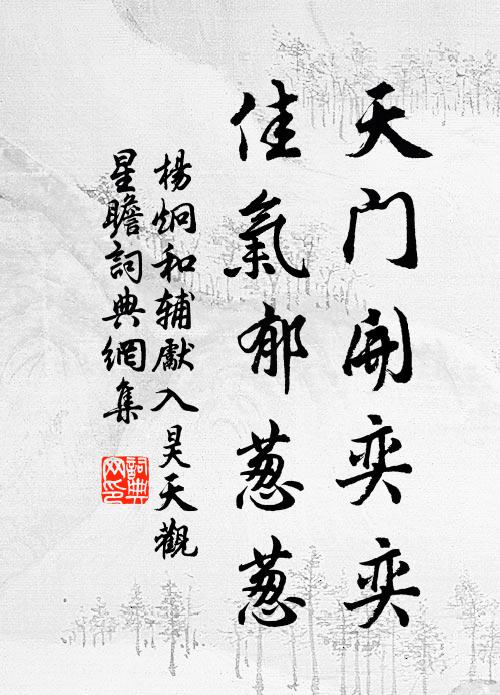 天门开奕奕
佳氣郁葱葱
楊炯和辅獻入昊天觀
星瞻詞典網集
詞典
网印